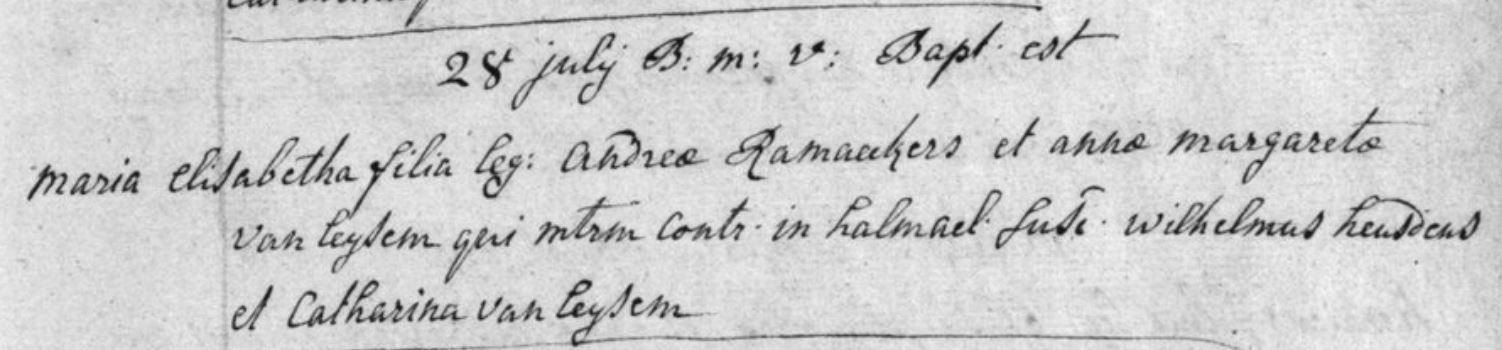 28 july B: m: v: Bapt· est
maria elisabetha filia leg: Andreæ Ramaekers et annæ margaretæ
van leysem qui mtrm contr· in halmael· susc· wilhelmus heusdens
et Catharina van leysem